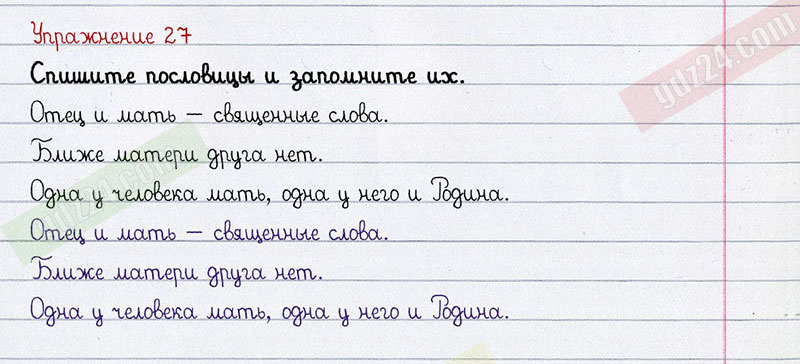 Упражнение 27
gdz24.com
Спишите пословицы и запомните их.
Отец и мать – священные слова.
Ближе матери друга нет.
gdz24.com
Одна у человека мать, одна у него и Родина.
Отец и мать – священные слова.
Ближе матери друга нет.
Одна у человека мать, одна у него и Родина.